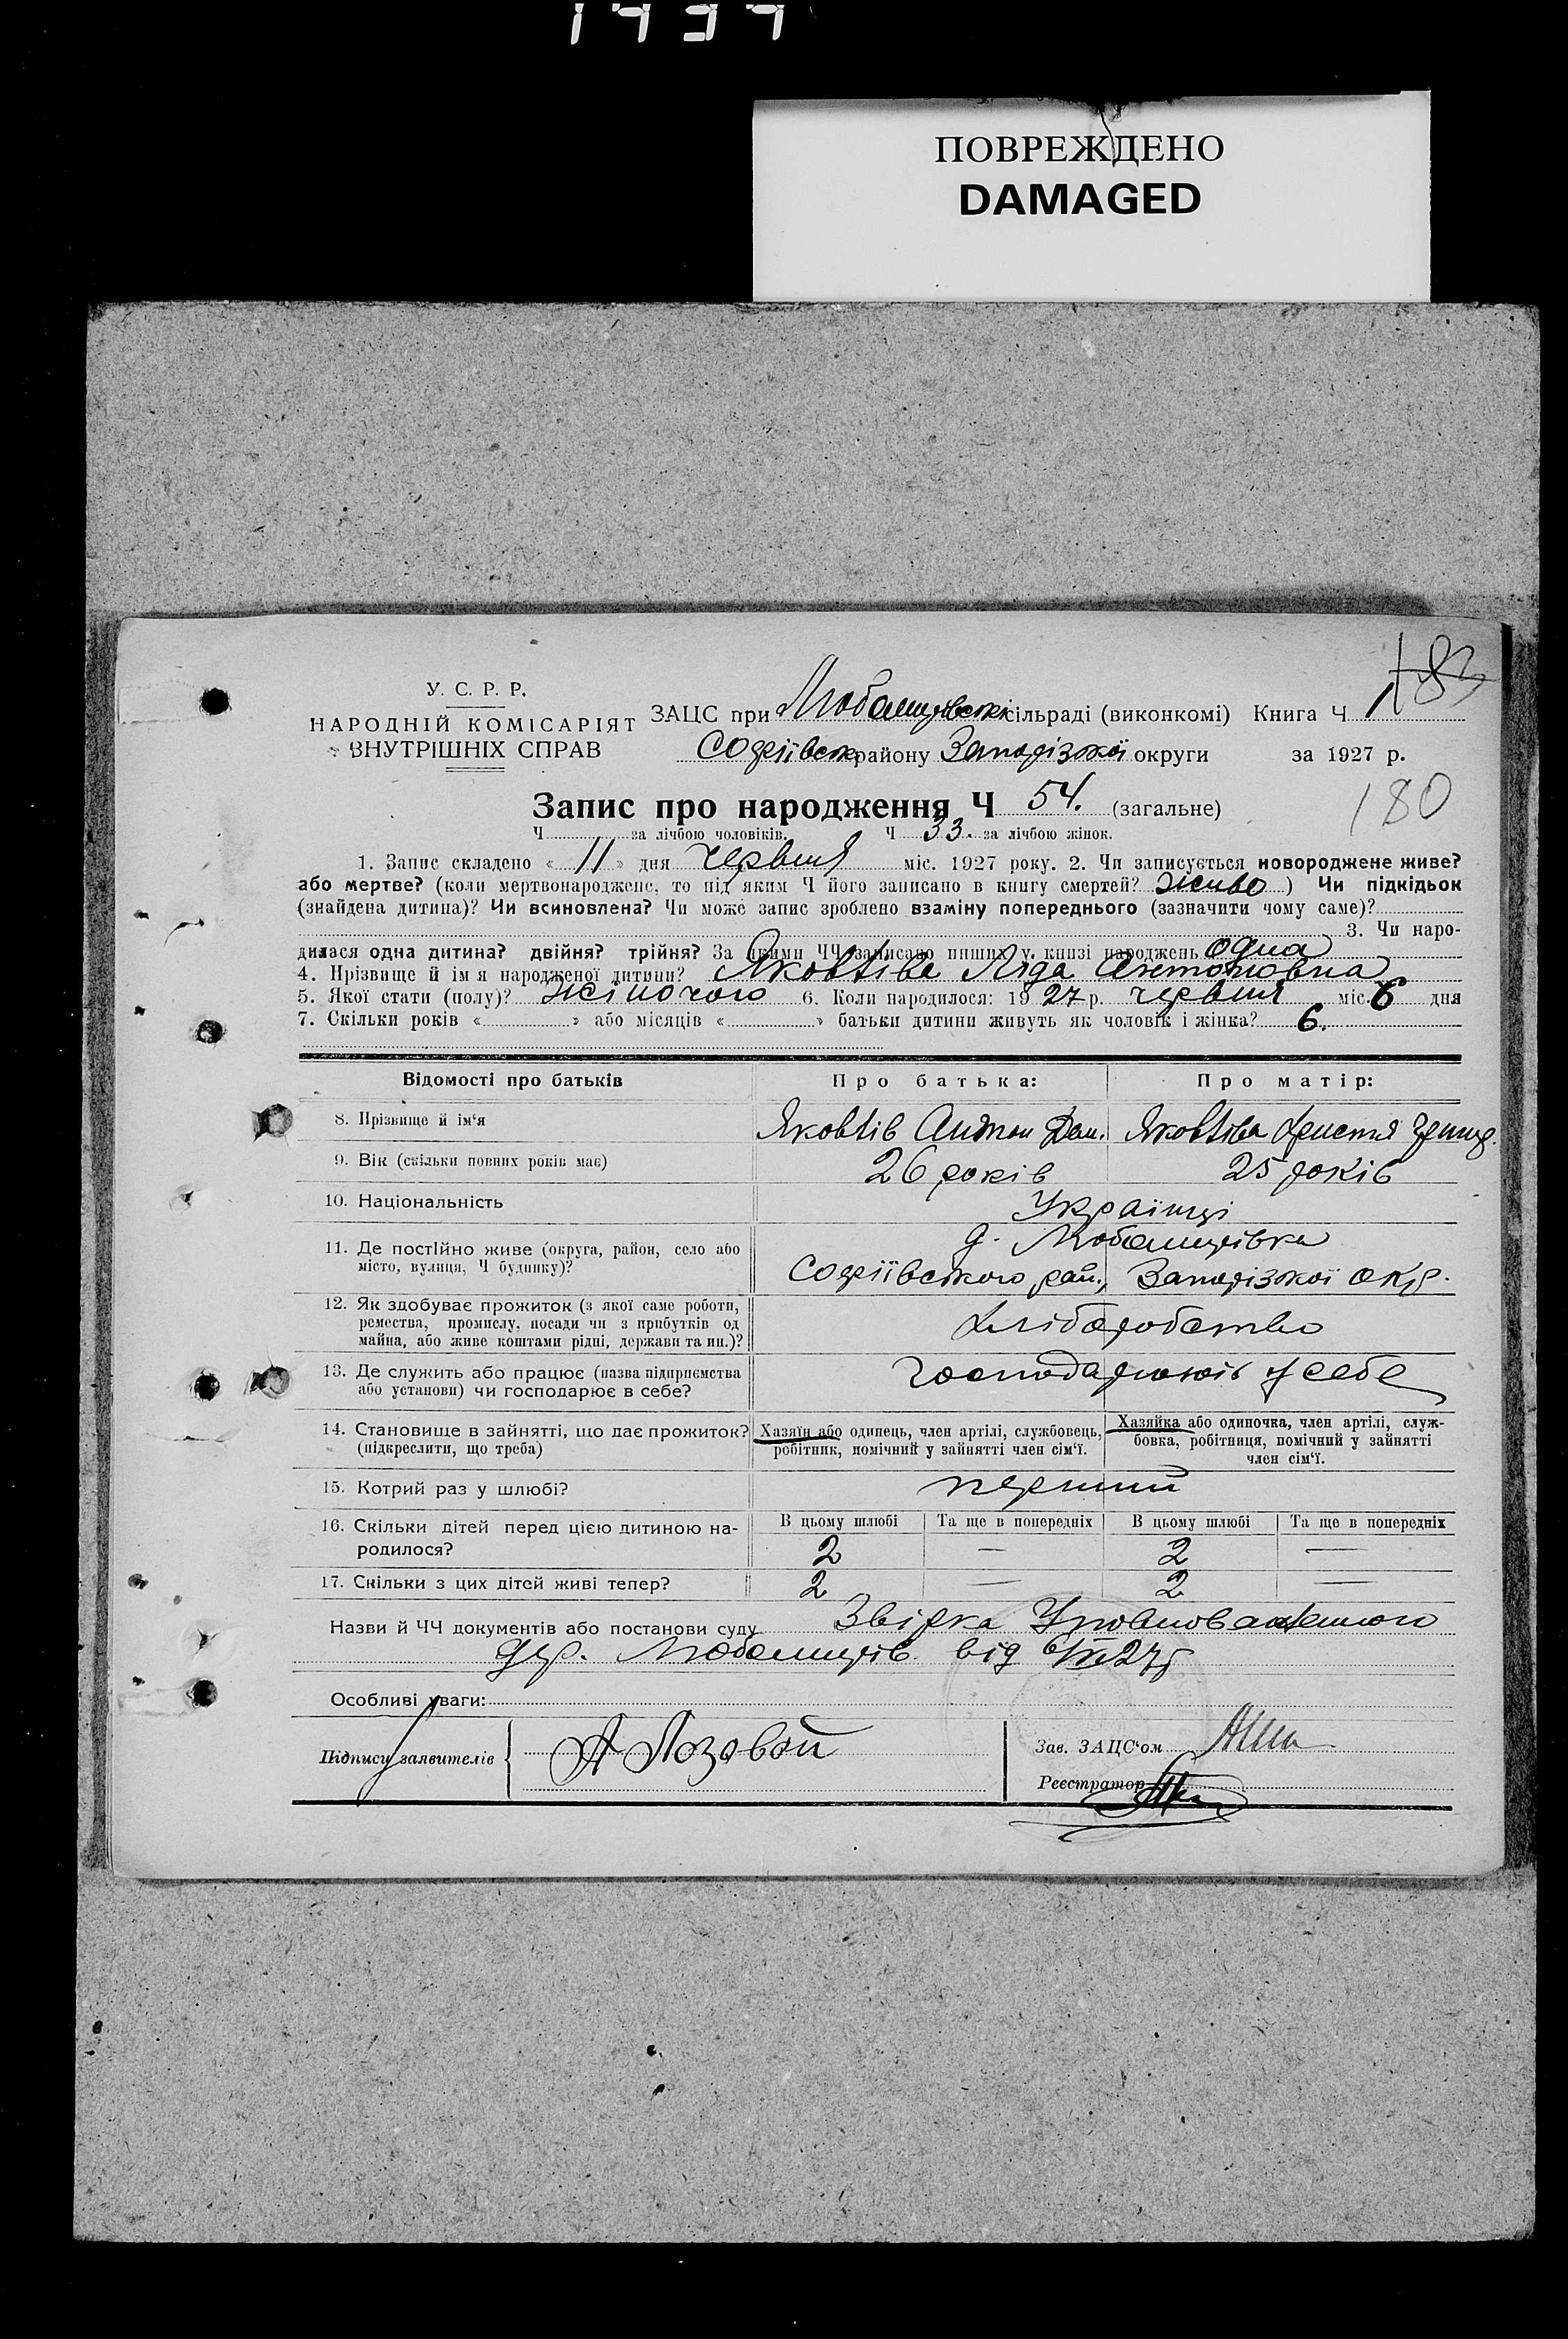 1939
ПОВРЕЖДЕНО
DAMAGED
183
У. С. Р. Р.
НАРОДНІЙ КОМІСАРІЯТ
ВНУТРІШНІХ СПРАВ
ЗАЦС при Любомирівськ сільраді (виконкомі) Книга Ч 1
Софіївськ району Запорізької округи за 1927 р.
180
Запис про народження Ч 54. (загальне)
Ч за лічбою чоловіків. Ч 33. за лічбою жінок.
1. Запис складено « 11 » дня червня міс. 1927 року. 2. Чи записується новороджене живе?
або мертве? (коли мертвонароджене, то під яким Ч його записано в книгу смертей? живо ) Чи підкідьок
(знайдена дитина)? Чи всиновлена? Чи може запис зроблено взаміну попереднього (зазначити чому саме)?
3. Чи наро-
дилася одна дитина? двійня? трійня? За якими ЧЧ записано инших у книзі народжень одна
4. Прізвище й ім я народженої дитини? Яковтіва Ліда Антоновна
5. Якої стати (полу)? жіночого 6. Коли народилося: 19 27 р. червня міс. 6 дня
7. Скільки років « » або місяців « » батьки дитини живуть як чоловік і жінка? 6.
Відомості про батьків Про батька: Про матір:
8. Прізвище й ім‘я Яковтів Антон Дан. Яковтіва Христя
9. Вік (скільки повних років має) 26 років 25 років
10. Національність Українці
11. Де постійно живе (округа, район, село або
місто, вулиця, Ч будинку)?
д. Любомирівка
Софіївського рай., Запорізької окр.
12. Як здобуває прожиток (з якої саме роботи,
ремества, промислу, посади чи з прибутків од
майна, або живе коштами рідні, держави та ин.)?
Хліборобство
13. Де служить або працює (назва підприємства
або установи) чи господарює в себе?
Господарюють у себе
14. Становище в зайнятті, що дає прожиток?
(підкреслити, що треба)
Хазяїн або одинець, член артілі, службовець,
робітник, помічний у зайнятті член сім‘ї.
Хазяйка або одиночка, член артілі, служ-
бовка, робітниця, помічний у зайнятті
член сім‘ї.
15. Котрий раз у шлюбі? перший
16. Скільки дітей перед цією дитиною на-
родилося?
В цьому шлюбі Та ще в попередніх В цьому шлюбі Та ще в попередніх
2 — 2 —
17. Скільки з цих дітей живі тепер? 2 — 2 —
Назви й ЧЧ документів або постанови суду Звірка Уповноваженого
дер. Любомирів. від 6/VI 27р
Особливі уваги:
Підписи заявителів А Лозовой
Зав. ЗАЦС‘ом
Реєстратор